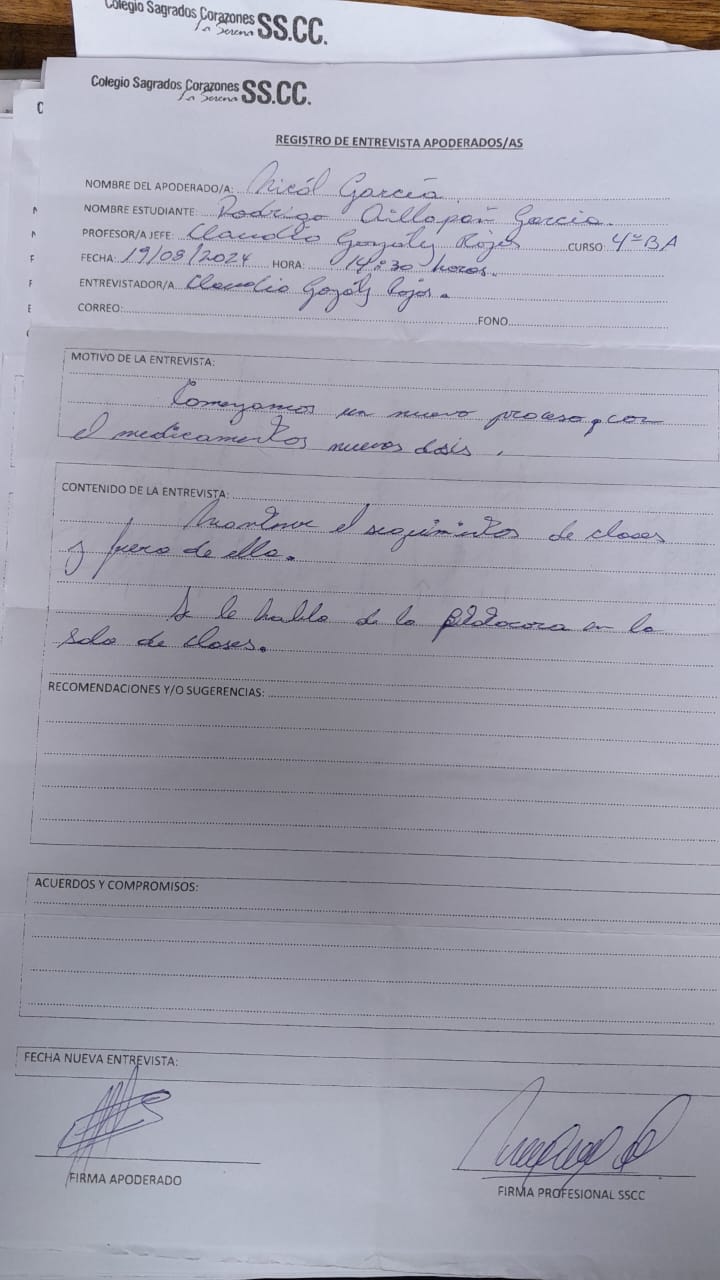 Colegio Sagrados Corazones SS.CC.
La Serena
Colegio Sagrados Corazones SS.CC.
La Serena
REGISTRO DE ENTREVISTA APODERADOS/AS
NOMBRE DEL APODERADO/A: Nicól García
NOMBRE ESTUDIANTE: Rodrigo Aillapañ García.
PROFESOR/A JEFE: Claudio Gonzály Rojas CURSO: 4ºBA
FECHA: 19/08/2024 HORA: 14:30 horas.
ENTREVISTADOR/A Claudio Gozály Rojas.
CORREO: FONO
MOTIVO DE LA ENTREVISTA:
Comenzamos un nuevo proceso, con
el medicamentos nuevos dosis.
CONTENIDO DE LA ENTREVISTA:
Mantener el seguimientos de clases
y fuera de ella.
Se le habla de la en la
sala de clases.
RECOMENDACIONES Y/O SUGERENCIAS:
ACUERDOS Y COMPROMISOS:
FECHA NUEVA ENTREVISTA:
FIRMA APODERADO
FIRMA PROFESIONAL SSCC